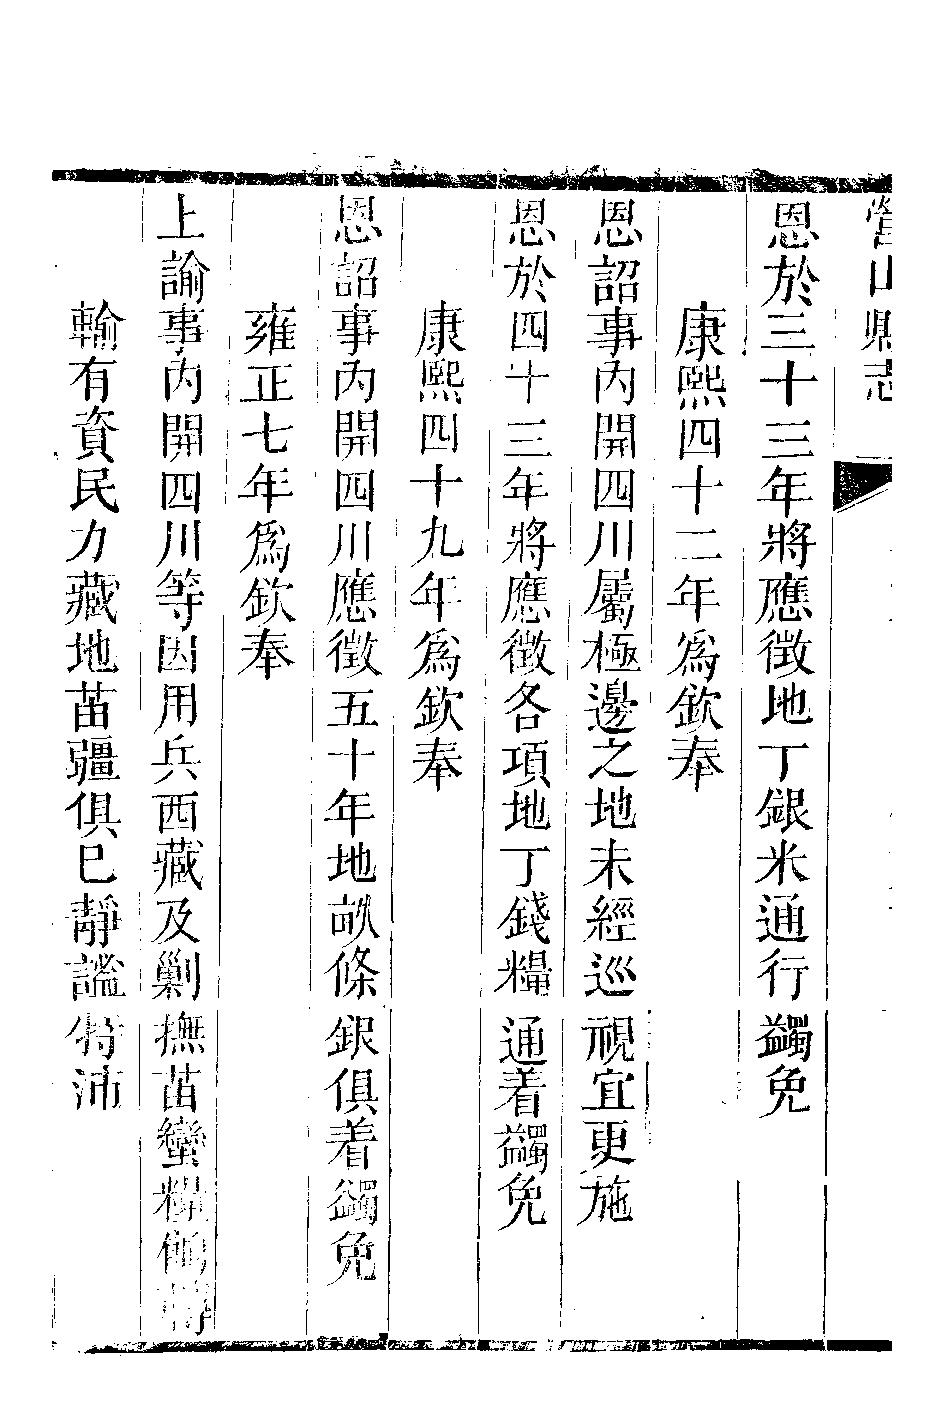 營山縣志
恩於三十三年將應徴地丁銀米通行蠲免
康熙四十二年爲欽奉
恩詔事内開四川屬極邊之地未經巡視宜更施
恩於四十三年將應徴各項地丁錢糧通着蠲免
康熙四十九年爲欽奉
恩詔事内開四川應徴五十年地畝條銀俱着蠲免
雍正七年爲欽奉
上諭事内開四川等因用兵西藏及剿撫苗蠻糧餉
輸有資民力藏地苗疆俱已靜謐特沛